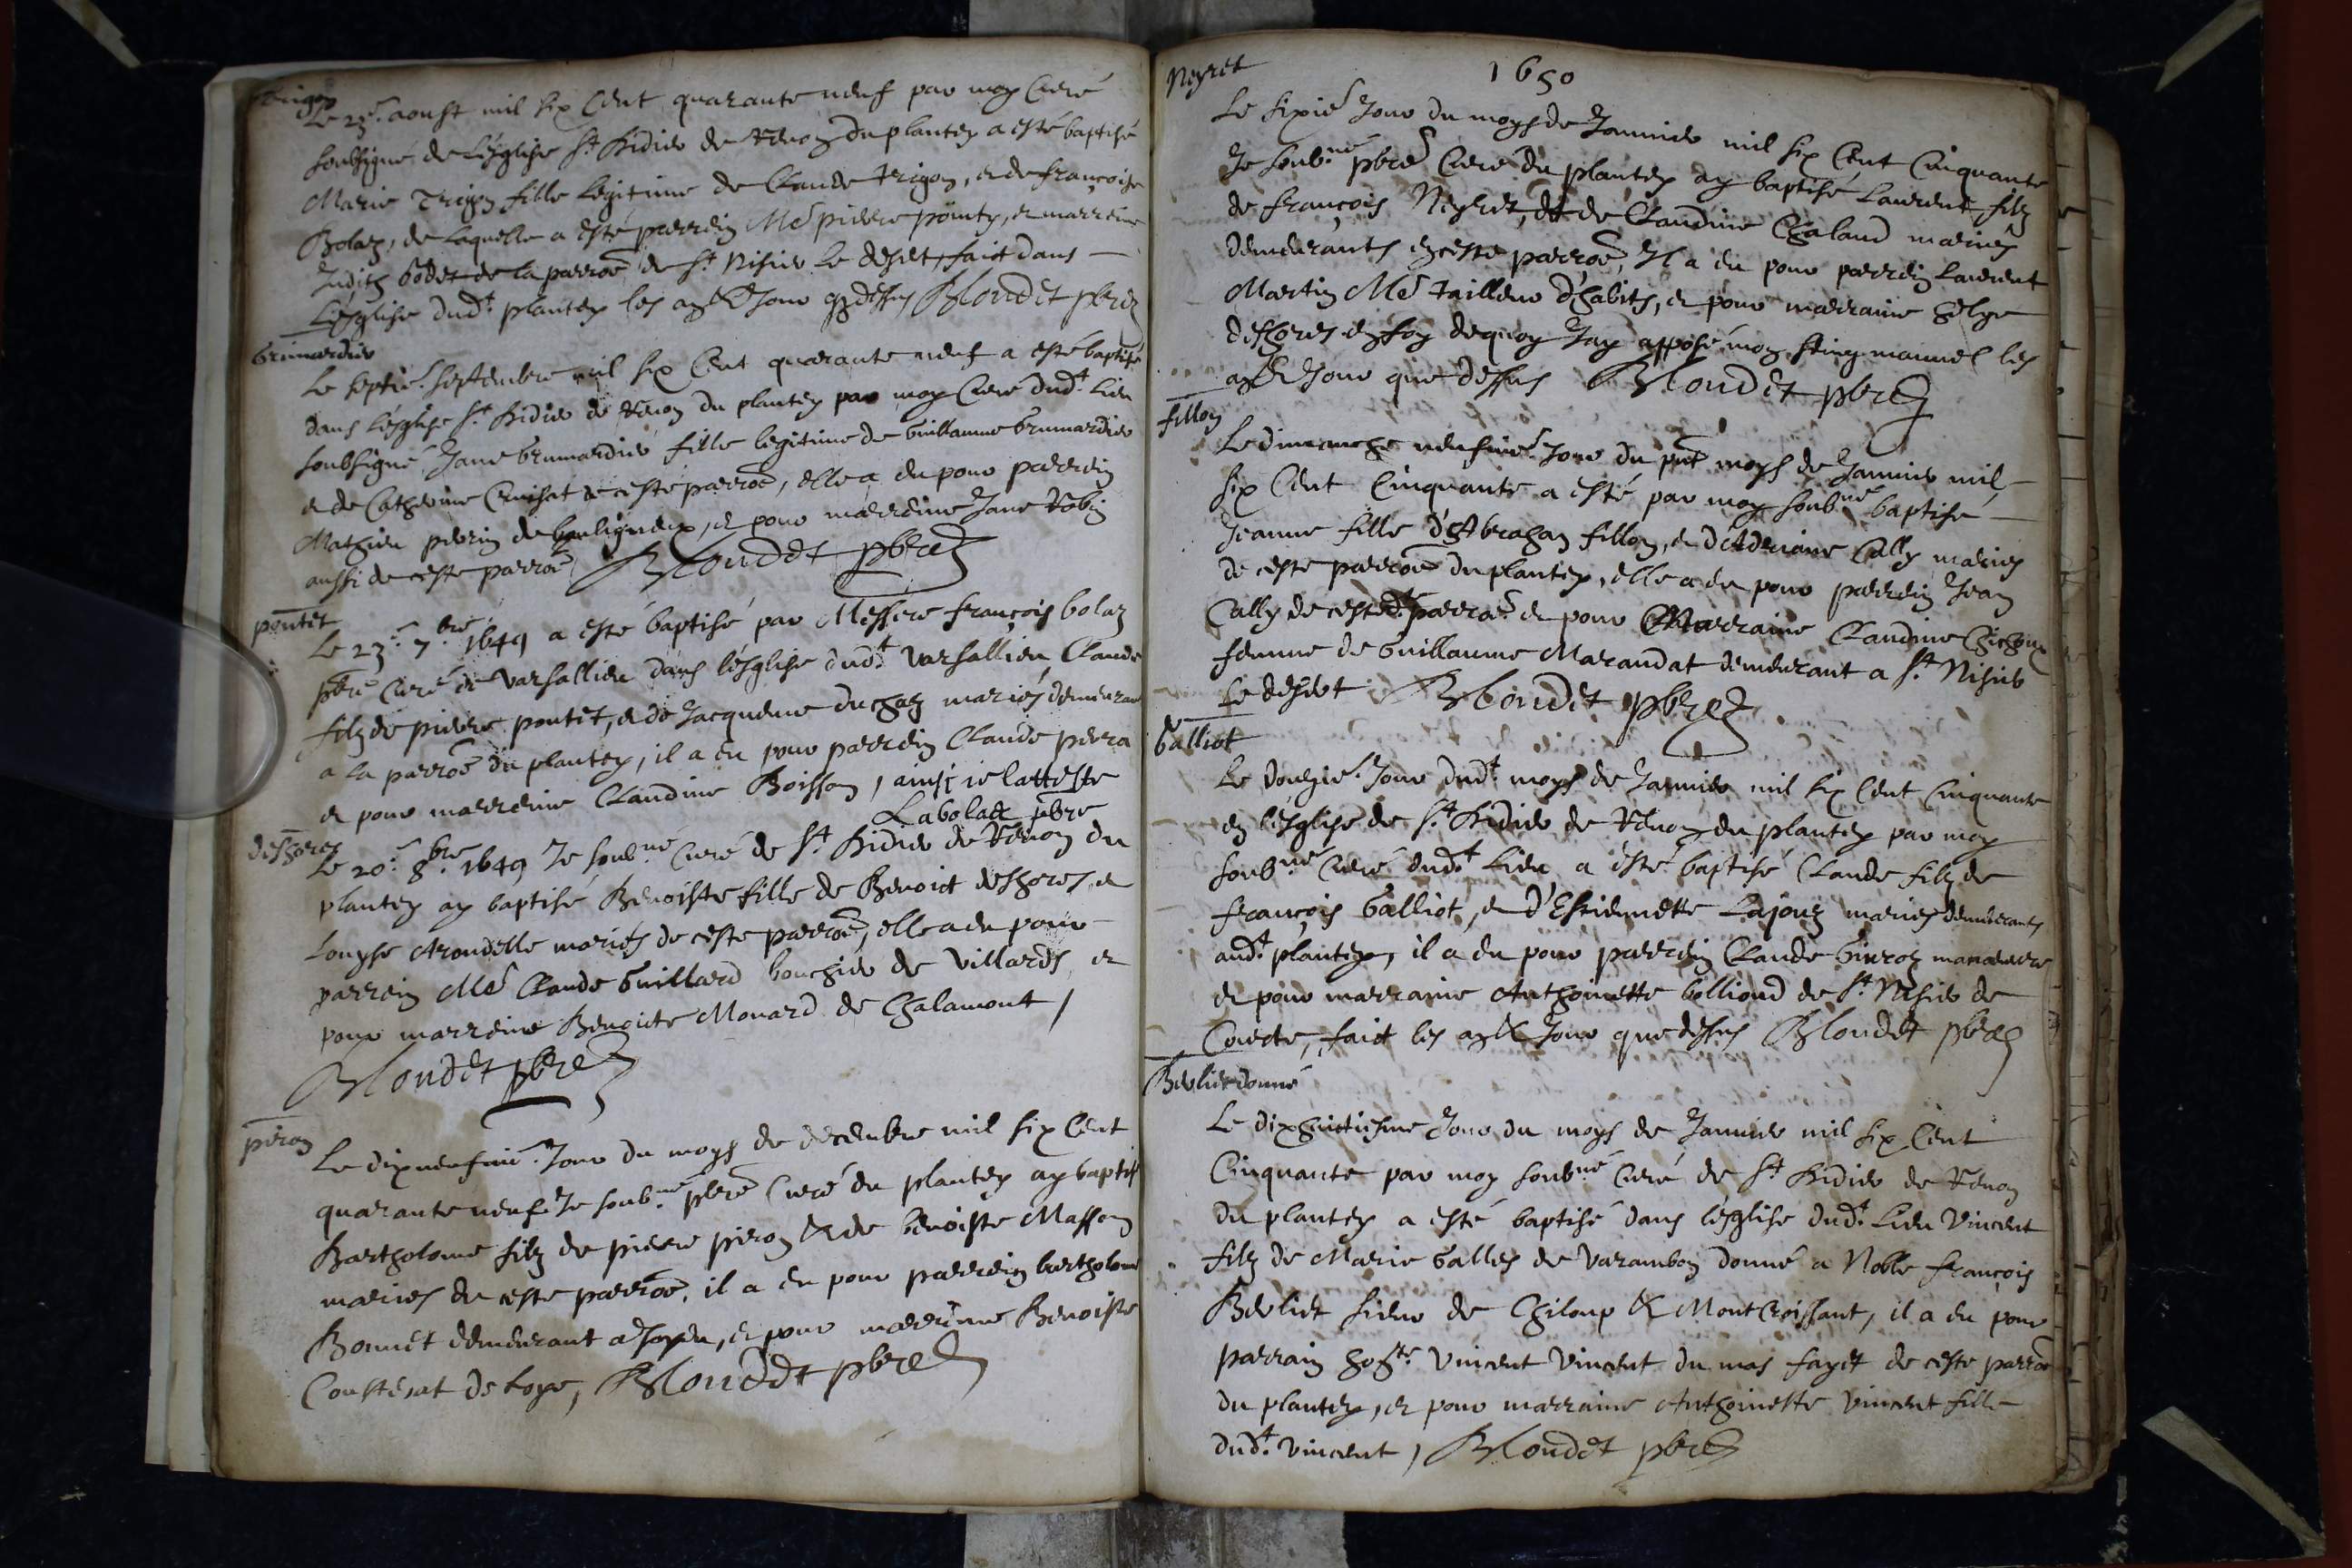 Trigon
Le 23e. aoust mil six Cent quarante neuf par moy Curé
soubsigné de L'esglise St. Didier de Renon du plantey a esté baptisé
Marie Trigon fille legitime de Claude trigon, et de françoise
Bolaz, de Laquelle a esté parrein Me pierre pointy, et marreine
Judith Godet de la parroe. de St. Nisier Le desert, faict dans
L'esglise dudt. plantey les an & Jour que dessus Blondet pbre
Grumardier
Le septie. septembre mil six Cent quarante neuf a esté baptisé
dans l'esglise St. Didier de Renon du plantey par moy Curé dudt. Lieu
soubsigné, Jane Grumardier fille legitime de Guillaume Grumardier
et de Catherine Cruisat de ceste parroe, elle a eu pour parrein
Mathieu perrin de bouligneux, et pour marreine Jane Robin
aussi de ceste parroe, Blondet pbre
pontet
Le 23e. 7bre. 1649 a esté baptisé par Messere françois bolaz
pbre Curé de Varsallieu dans l'esglise dudt. Varsallieu Claude
filz de pierre pontet, et de Jacqueme duchaz mariés demeurant
a la parroe du plantey, il a eu pour parrein Claude perra
et pour marreine Claudine Boisson, ainsi ie l'atteste
Labolaz pbre
deshores
Le 20e. 8bre. 1649 Je soubne. Curé de St. Didier de Renon du
plantey ay baptisé Benoiste fille de Benoict deshores, et
Louyse Arondelle mariés de ceste parroe, elle a eu pour
parrein Me Claude Guillard bouchier de Villards, et
pour marreine Benoicte Monard de Chalamont /
Blondet pbre
piron
Le dixneufuie. Jour du moys de decembre mil six Cent
quarante neuf Je soubne. pbre Curé du plantey ay baptisé
Bartholome filz de pierre piron & de benoiste Masson
mariés de ceste parroe, il a eu pour parrein bartholome
Bonnet demeurant a Joyeu, et pour marreine Benoiste
Coustesat de Loye, Blondet pbre
Neyret
1650
Le sixie Jour du moys de Januier mil six Cent Cinquante
Je soubne. pbre Curé du plantey ay baptisé Laurent filz
de françois Neyret, et de Claudine Chaland mariés
demeurants en ceste parroe, Il a eu pour parrein Laurent
Martin Me tailleur d'habits, et pour marraine helye
deshores en foy dequoy Jay apposé mon seing manuel les
an & Jour que dessus Blondet pbre
fillon
Le dimanche neufuie. Jour du pnt moys de Januier mil
six Cent Cinquante a esté par moy soubne. baptisé
Jeanne fille d'Abraham fillon, et d'Adriane Cally mariés
de ceste parroe du plantey, elle a eu pour parrein Jean
Cally de ceste dt. parroe. et pour Marraine Claudine Chichoux
femme de Guillaume Marandat demeurant a St. Nisier
Le desert Blondet pbre
Galliot
Le douzie. Jour dudt. moys de Januier mil six Cent Cinquante
en l'esglise de St. Didier de Renon du plantey par moy
soubne. Curé dudt. Lieu a esté baptisé Claude filz de
françois Galliot, et d'Estiennette Lajoux mariés demeurants
audt. plantey, il a eu pour parrein Claude Guyroz manoeuure
et pour marraine Anthoinette bolliond de St. Nisier de
Courte, faict les an & Jour que dessus Blondet pbre
Berliet donné
Le dixhuictiesme Jour du moys de Januier mil six Cent
Cinquante par moy soubne. Curé de St. Didier de Renon
du plantey a esté baptisé dans l'esglise dudt. Lieu Vincent
filz de Marie Galley de Varambon donné a Noble françois
Berliet sieur de Chiloup & MontCroissant, il a eu pour
parrain honste. Vincent Vincent du mas fayet de ceste parroe
du plantey, et pour marraine Anthoinette Vincent fille
dudt. Vincent, Blondet pbre